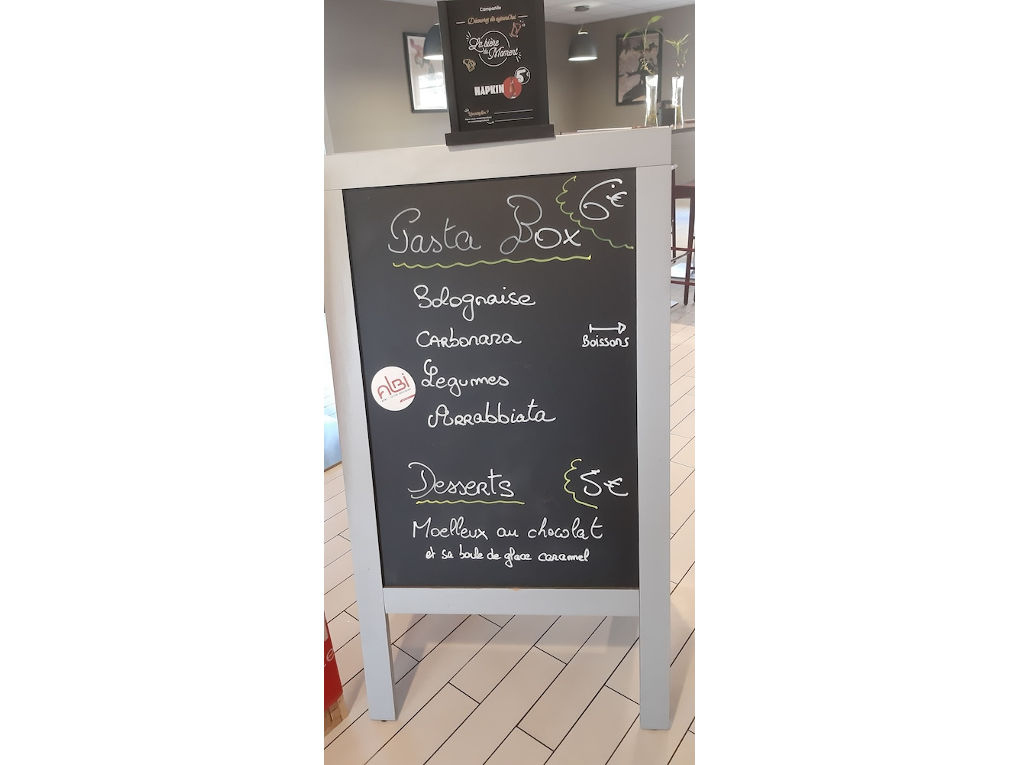 Campanile
Découvrez dès aujourd'hui
La bière
du Moment
HAPKIN
5€
Pasta Box
6€
Bolognaise
Carbonara
Boissons
Légumes
ALBI
Arrabbiata
Desserts
5€
Moelleux au chocolat
et sa boule de glace caramel